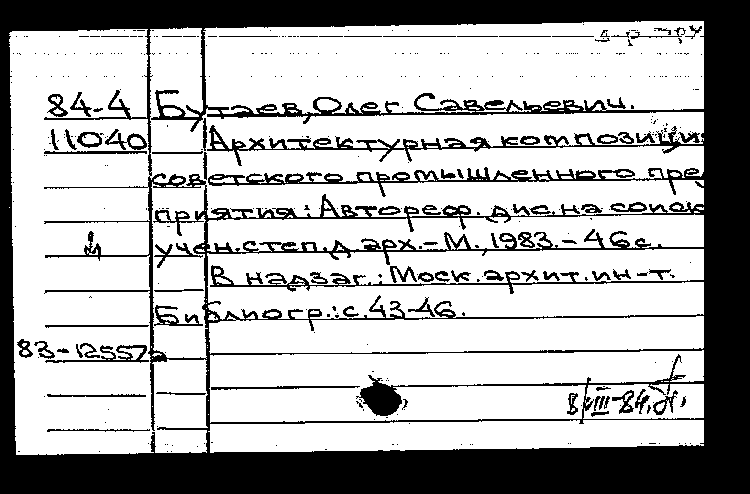 84-4 Бутаев, Олег Савельевич.
11040 Архитектурная композиция
советского промышленного пред
приятия: Автореф. дис. на соиск
учен. степ. д арх. - М., 1983. - 46 с.
В надзаг.: Моск. архит. ин-т.
Библиогр.: с. 43-46.
83-12557
8/VIII-84.